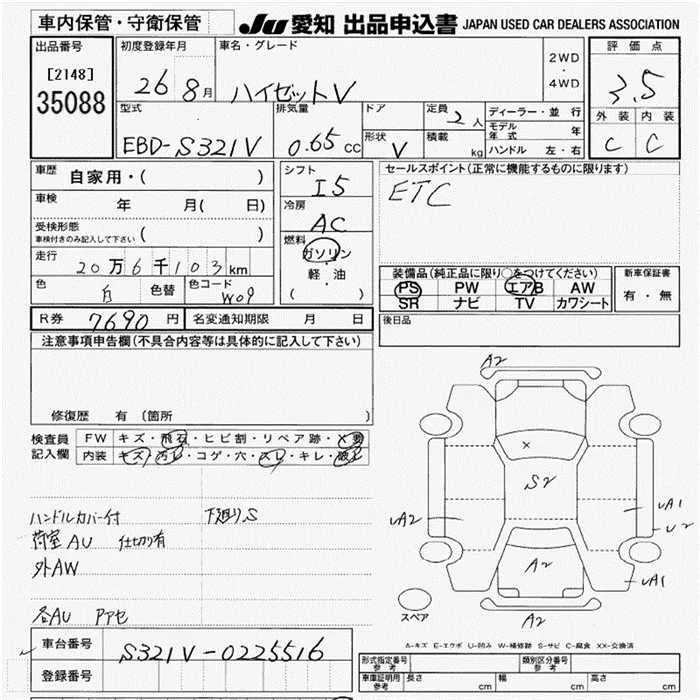 車内保管・守衛保管 JU 愛知 出品申込書 JAPAN USED CAR DEALERS ASSOCIATION
出品番号 初度登録年月 車名・グレード 2WD・4WD 評価点
[2148] 26 8月 ハイゼットV 3.5
35088
型式 排気量 ドア 定員 2人 ディーラー・並行 外装 内装
EBD-S321V 0.65cc 形状 V 積載 kg モデル年式 年 C C
ハンドル 左・右
車歴 自家用・( ) シフト I5 セールスポイント(正常に機能するものに限ります)
車検 年 月( 日) 冷房 AC ETC
受検形態 車検付きのみ記入して下さい ( )
走行 20万6千103km 燃料 ガソリン・軽油 ( )
装備品(純正品に限り○をつけてください) 新車保証書
色 白 色替 色コード W09 PS PW エアB AW 有・無
SR ナビ TV カワシート
R券 7690円 名変通知期限 月 日 後日品
注意事項申告欄(不具合内容等は具体的に記入して下さい)
修復歴 有 (箇所 )
検査員記入欄 FW キズ・飛石・ヒビ割・リペア跡・X要
内装 キズ・汚レ・コゲ・穴・スレ・キレ・破レ
ハンドルカバー付 下廻りS
荷室AU 仕切り有
外AW
各AU Pアセ
A2
X
S2
UA2 UA1
U2
A2
UA1
スペア A2
A-キズ E-エクボ U-凹み W-補修跡 S-サビ C-腐食 XX-交換済
車台番号 S321V-0225516
登録番号
型式指定番号 参考 類別区分番号 参考
車庫証明用 参考 長さ cm 幅 cm 高さ cm